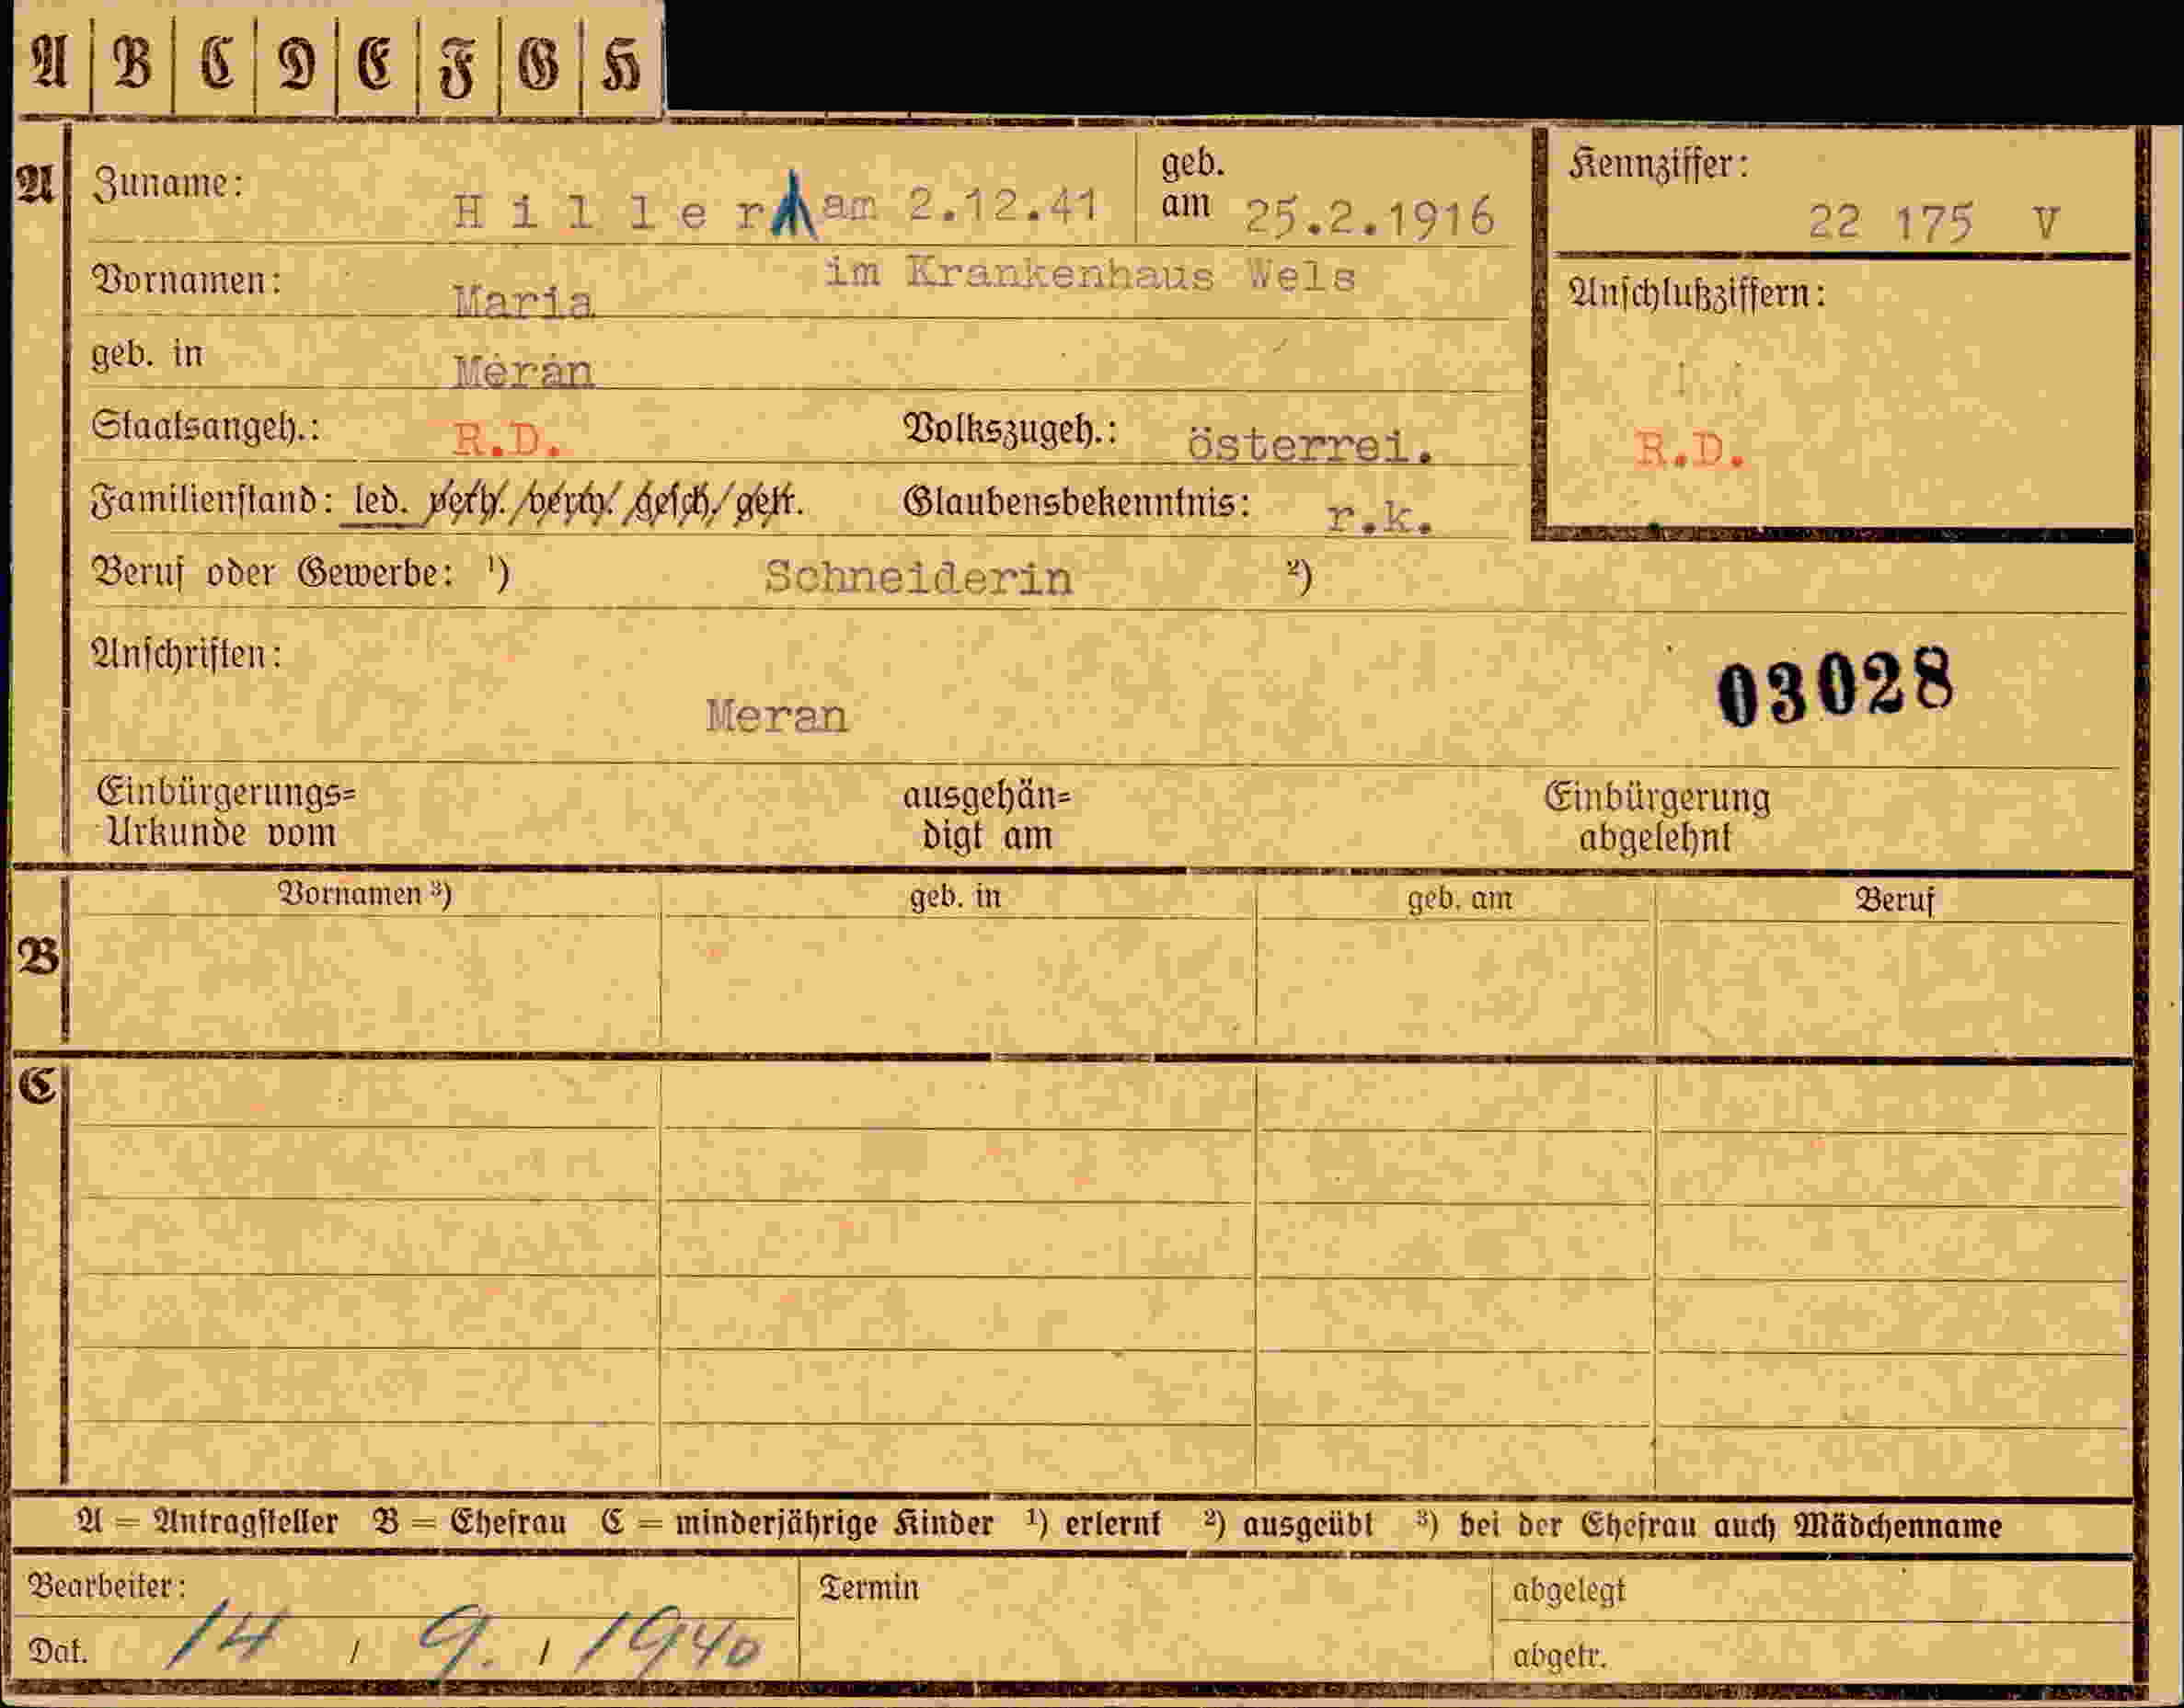 A B C D E F G H
A Zuname: Hiller am 2.12.41 geb. am 25.2.1916
im Krankenhaus Wels
Kennziffer: 22 175 V
Vornamen: Maria
Anschlußziffern:
R.D.
geb. in Meran
Staatsangeh.: R.D. Volkszugeh.: österrei.
Familienstand: led. verh. verw. gesch. getr. Glaubensbekenntnis: r.k.
Beruf oder Gewerbe: ¹) Schneiderin ²)
Anschriften:
03028
Meran
Einbürgerungs=
Urkunde vom
ausgehän=
digt am
Einbürgerung
abgelehnt
B Vornamen ³) geb. in geb. am Beruf
C
A = Antragsteller B = Ehefrau C = minderjährige Kinder ¹) erlernt ²) ausgeübt ³) bei der Ehefrau auch Mädchenname
Bearbeiter: Termin abgelegt
Dat. 14 / 9. / 1940 abgetr.